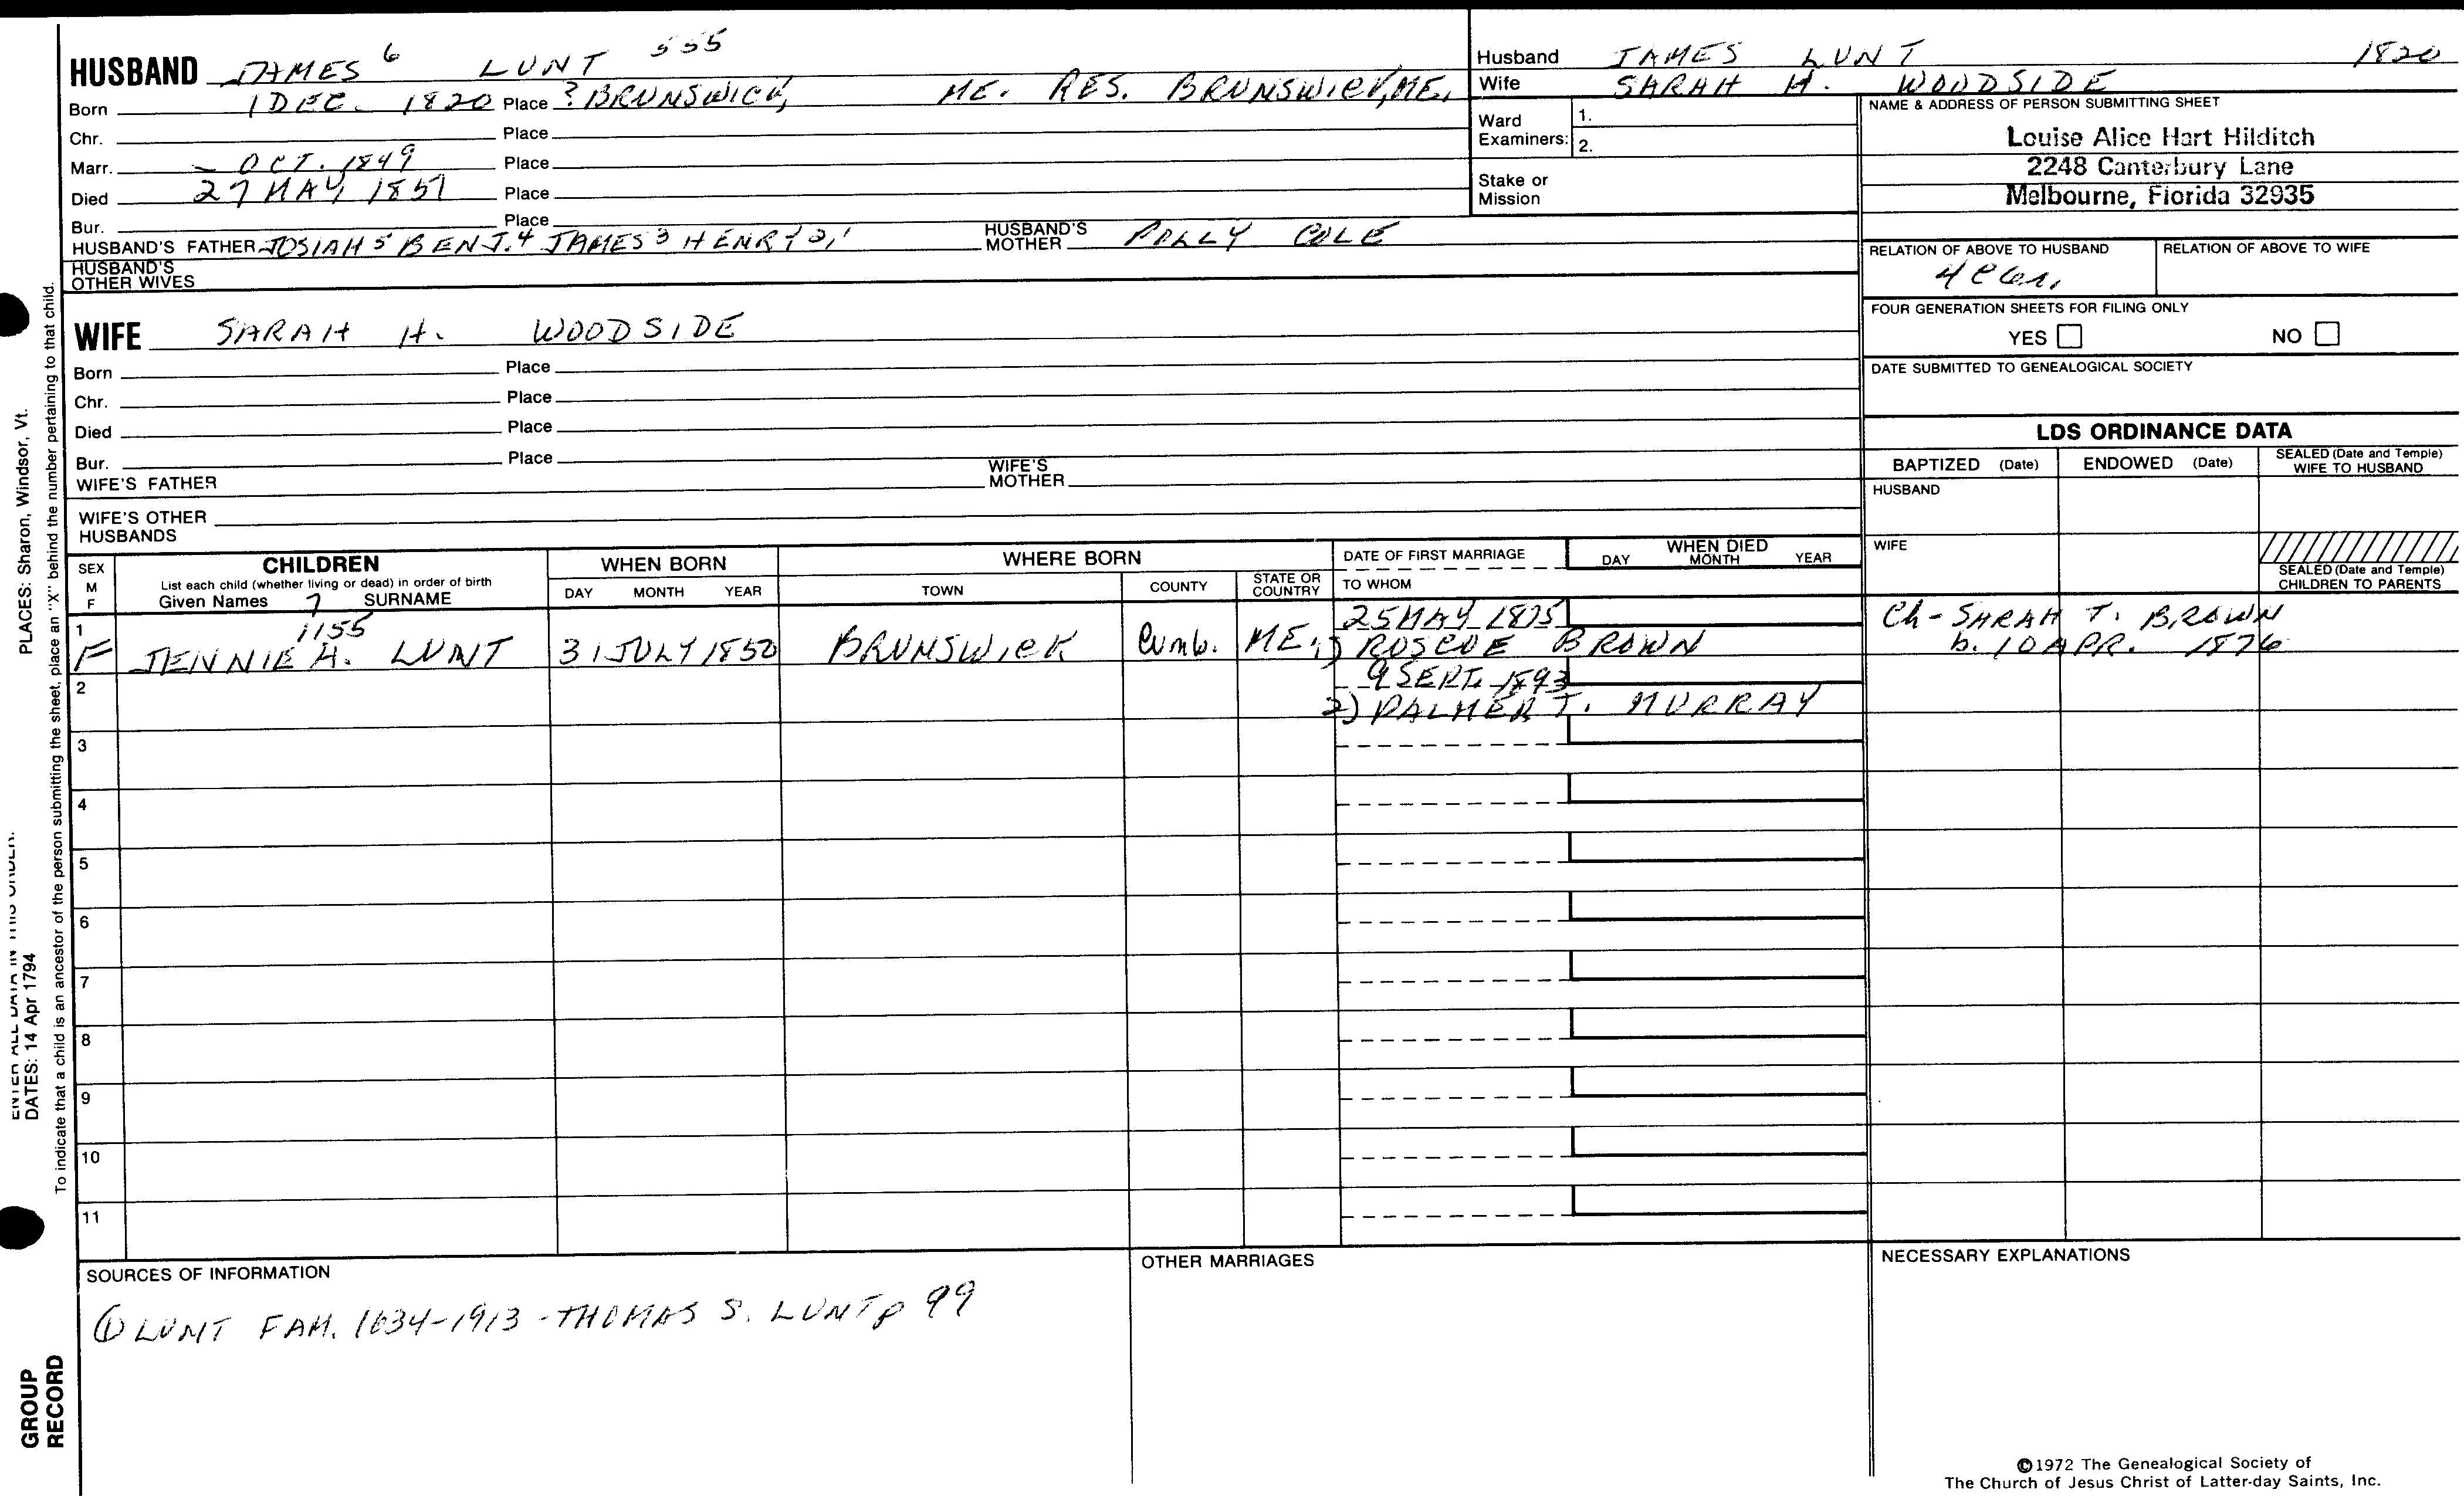 HUSBAND JAMES 6 LUNT 555
Born 1 DEC. 1820 Place ? BRUNSWICK, ME. RES. BRUNSWICK, ME.
Chr. Place
Marr. - OCT. 1849 Place
Died 27 MAY 1851 Place
Bur. Place
HUSBAND'S FATHER JOSIAH 5 BENJ. 4 JAMES 3 HENRY 2,1 HUSBAND'S MOTHER POLLY COLE
HUSBAND'S OTHER WIVES
WIFE SARAH H. WOODSIDE
Born Place
Chr. Place
Died Place
Bur. Place
WIFE'S FATHER WIFE'S MOTHER
WIFE'S OTHER HUSBANDS
Husband JAMES LUNT 1820
Wife SARAH H. WOODSIDE
Ward Examiners: 1.
2.
Stake or Mission
NAME & ADDRESS OF PERSON SUBMITTING SHEET
Louise Alice Hart Hilditch
2248 Canterbury Lane
Melbourne, Florida 32935
RELATION OF ABOVE TO HUSBAND RELATION OF ABOVE TO WIFE
FOUR GENERATION SHEETS FOR FILING ONLY
YES NO
DATE SUBMITTED TO GENEALOGICAL SOCIETY
LDS ORDINANCE DATA
BAPTIZED (Date) ENDOWED (Date) SEALED (Date and Temple) WIFE TO HUSBAND
HUSBAND
WIFE
SEALED (Date and Temple) CHILDREN TO PARENTS
SEX M F
CHILDREN
List each child (whether living or dead) in order of birth
Given Names 7 SURNAME
WHEN BORN
DAY MONTH YEAR
WHERE BORN
TOWN COUNTY STATE OR COUNTRY
DATE OF FIRST MARRIAGE
TO WHOM
WHEN DIED
DAY MONTH YEAR
1 1155 25 MAY 1875 Ch - SARAH T. BROWN
F JENNIE H. LUNT 31 JULY 1850 BRUNSWICK Cumb. ME. 1) ROSCOE BROWN b. 10 APR. 1876
2 9 SEPT. 1893
2) PALMER T. MURRAY
3
4
5
6
7
8
9
10
11
SOURCES OF INFORMATION
① LUNT FAM. 1634-1913 - THOMAS S. LUNT p 99
OTHER MARRIAGES
NECESSARY EXPLANATIONS
©1972 The Genealogical Society of
The Church of Jesus Christ of Latter-day Saints, Inc.
PLACES: Sharon, Windsor, Vt.
ENTER ALL DATA IN THIS ORDER:
DATES: 14 Apr 1794
To indicate that a child is an ancestor of the person submitting the sheet, place an "X" behind the number pertaining to that child.
GROUP
RECORD